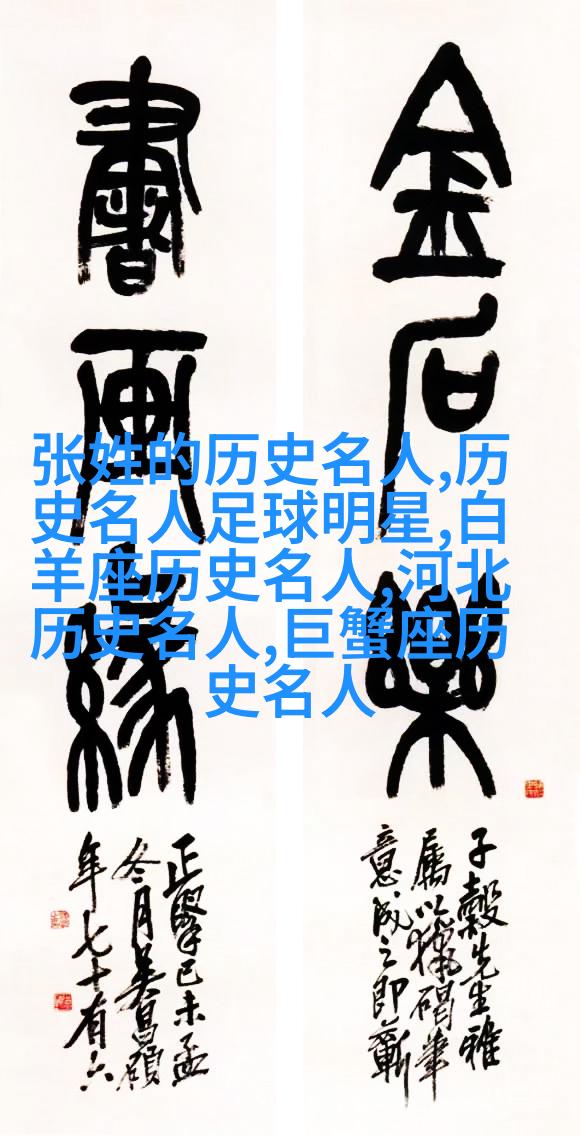 金石樂
書画緣
子穀先生雅
屬以獵碣筆
意成之即蘄
正擘己未孟
冬月吴昌碩
年七十有六
张姓的历史名人,历
史名人足球明星,白
羊座历史名人,河北
历史名人,巨蟹座历
史名人